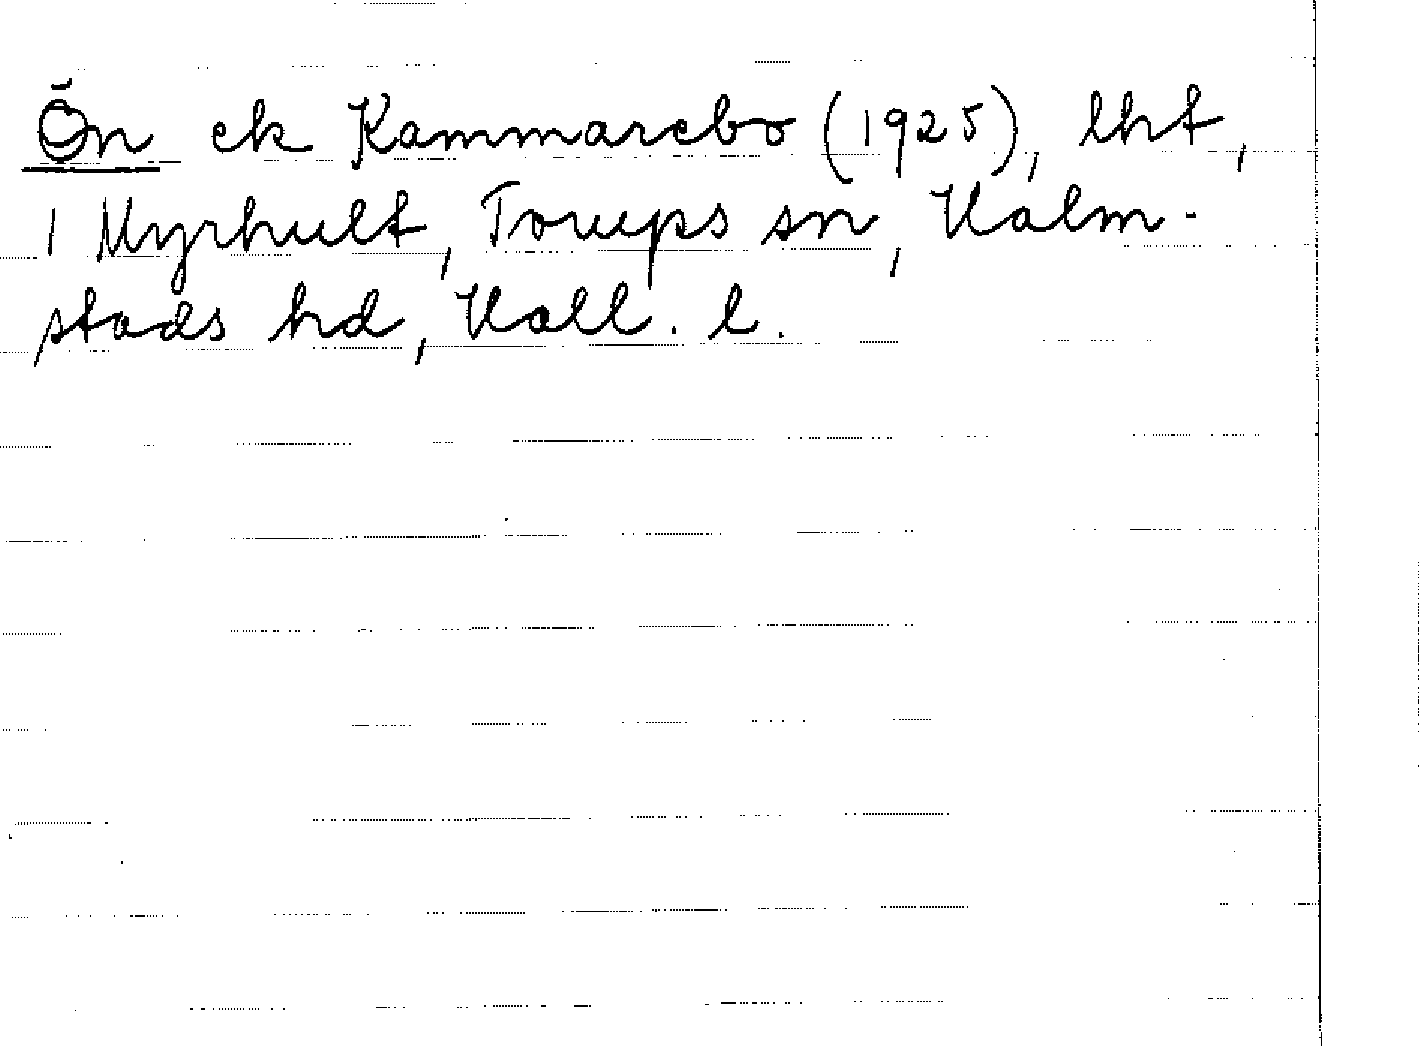 Ön ek Kammarebo (1925), lht,
1 Myrhult, Torups sn, Halm-
stads hd, Hall. l.